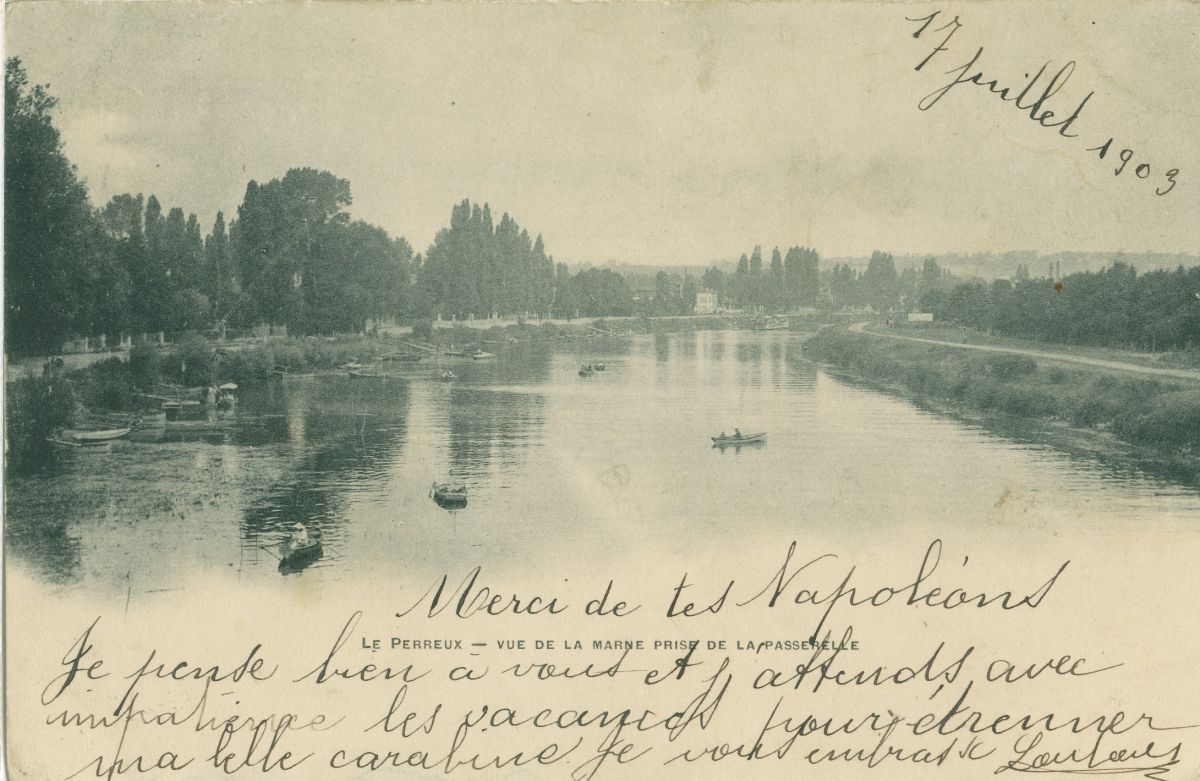 17 Juillet 1903
Merci de tes Napoléons
LE PERREUX — VUE DE LA MARNE PRISE DE LA PASSERELLE
Je pense bien à vous et j'attends avec
impatience les vacances pour étrenner
ma belle carabine. Je vous embrasse